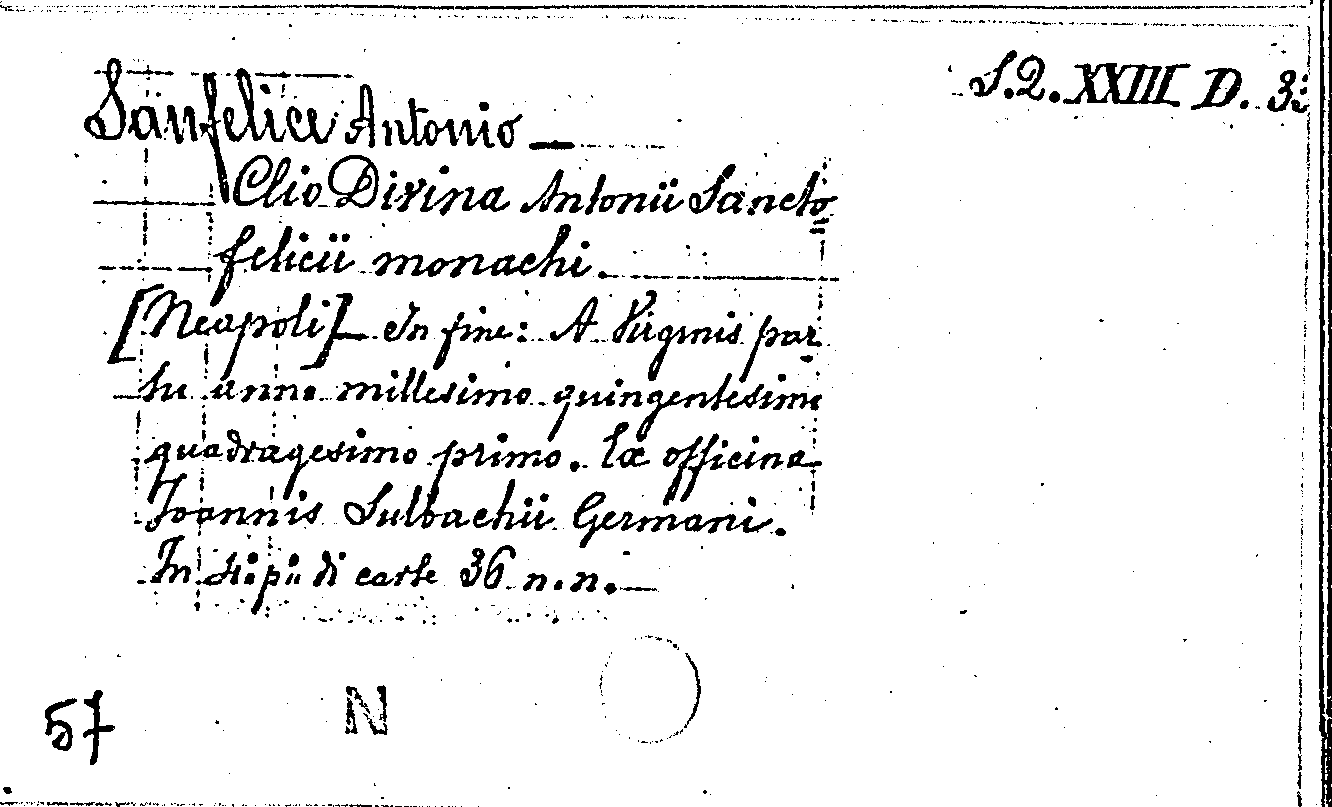 S.Q. XXIII D. 3
Sanfelice Antonio —
Clio Divina Antonii Sancto
felicii monachi.
[Neapoli] — In fine: A Virginis par
tu anno millesimo quingentesimo
quadragesimo primo. Ex officina
Joannis Sulbachii Germani.
In 4° p.° di carte 36 n.n. —
57
N